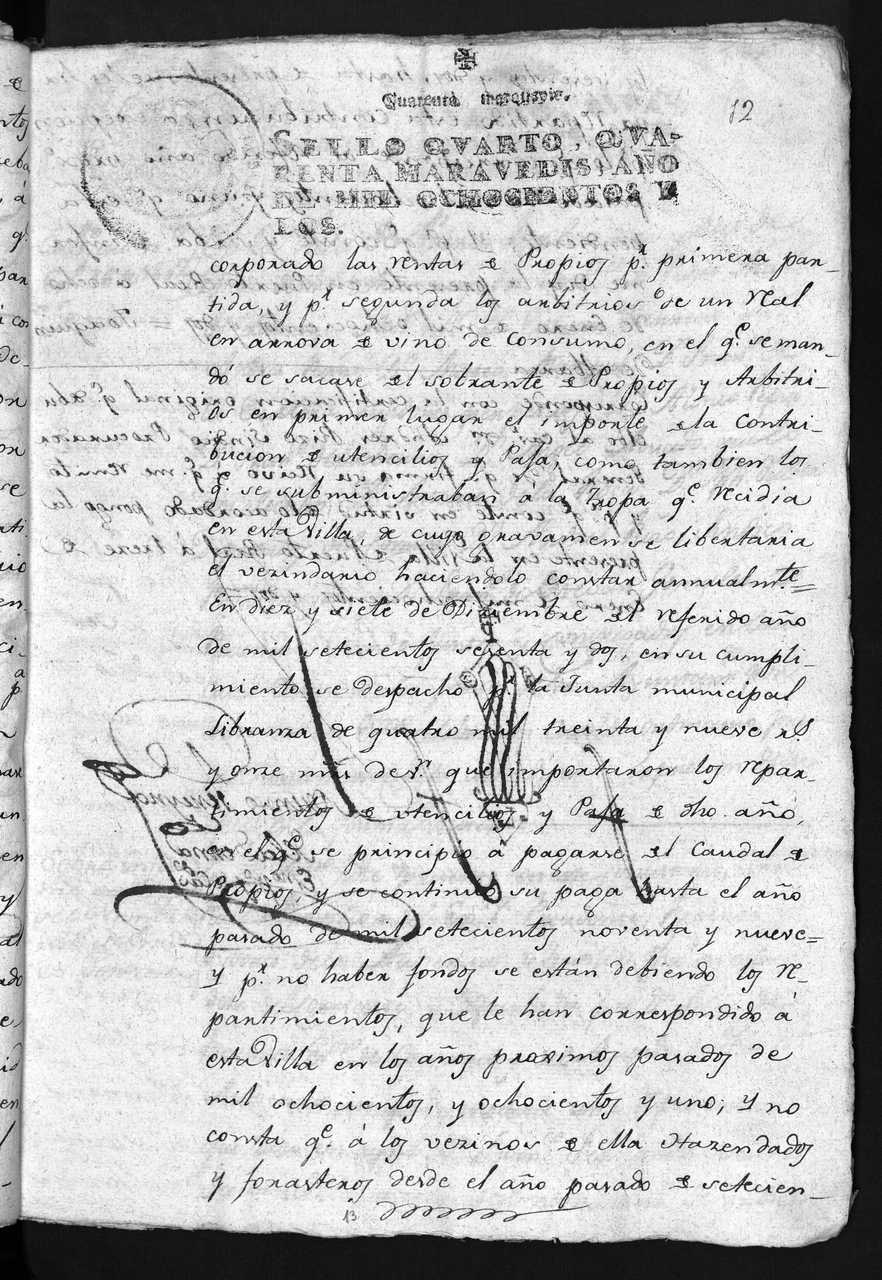 Quarenta maravedis.
12
SELLO QVARTO, QVA-
RENTA MARAVEDIS, AÑO
DE MIL OCHOCIENTOS Y
DOS.
corporado las rentas de Propios pr. primera par-
tida, y pr. segunda los arbitrios de un Real
en arrova de vino de consumo, en el qe. se man-
dó se sacase del sobrante de Propios y Arbitri-
os en primer lugar el importe de la Contri-
bucion de utencilios y Paja, como tambien los
qe. se subministraban á la Tropa qe. Recidia
en esta Villa, de cuyo gravamen se libertaria
el vezindario haciendolo constar annualmte.=
En diez y siete de Diziembre del referido año
de mil setecientos sesenta y dos, en su cumpli-
miento se despachó pr. la Junta municipal
Libranza de quatro mil treinta y nueve rs.
y onze mrs. de vn. que importaron los repar-
timientos de utencilios y Paja de dho. año,
en el qe. se principio a pagarse del Caudal de
Propios, y se continuó su paga hasta el año
pasado de mil setecientos noventa y nueve=
Y pr. no haber fondos se están debiendo los re-
partimientos, que le han correspondido á
esta Villa en los años proximos pasados de
mil ochocientos, y ochocientos y uno; y no
consta qe. á los vezinos de ella Hazendados
y forasteros desde el año pasado de setecien-
13